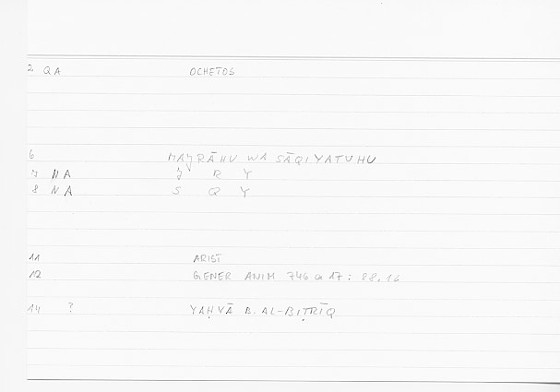 2 QA OCHETOS
6 MAǦRĀHU WA SĀQIYATUHU
7 NA Ǧ R Y
8 NA S Q Y
11 ARIST
12 GENER ANIM 746 a 17 : 88,16
14 ? YAḤYĀ B. AL-BIṬRĪQ